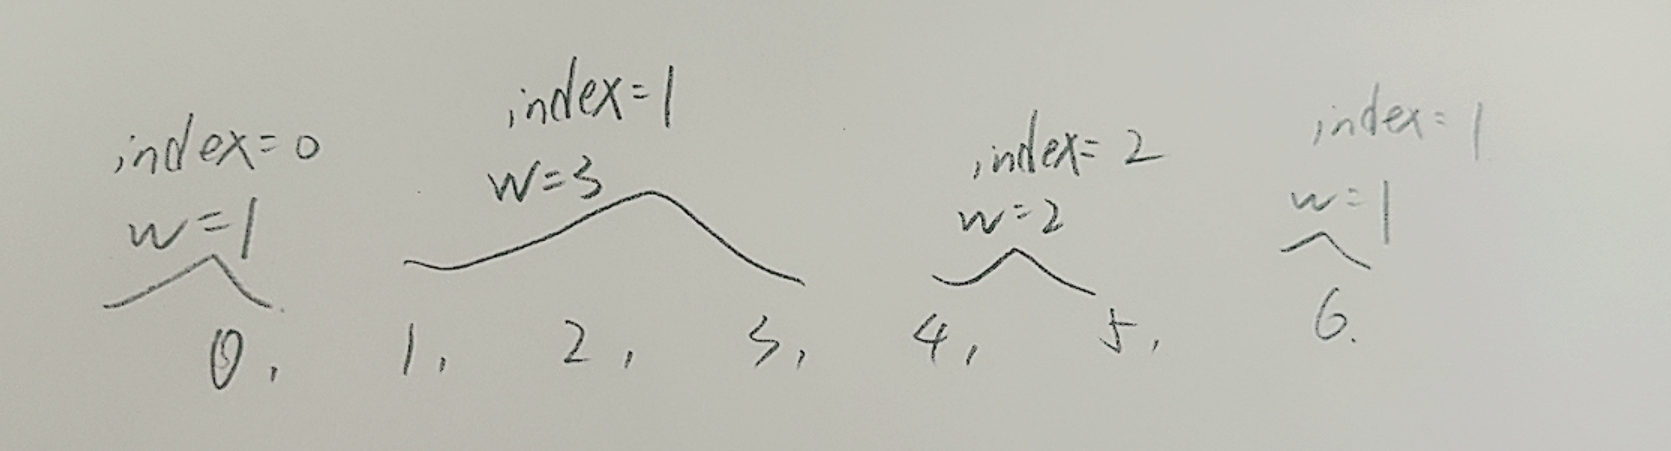 index=0
w=1
index=1
w=3
index=2
w=2
index=1
w=1
0, 1, 2, 3, 4, 5, 6.